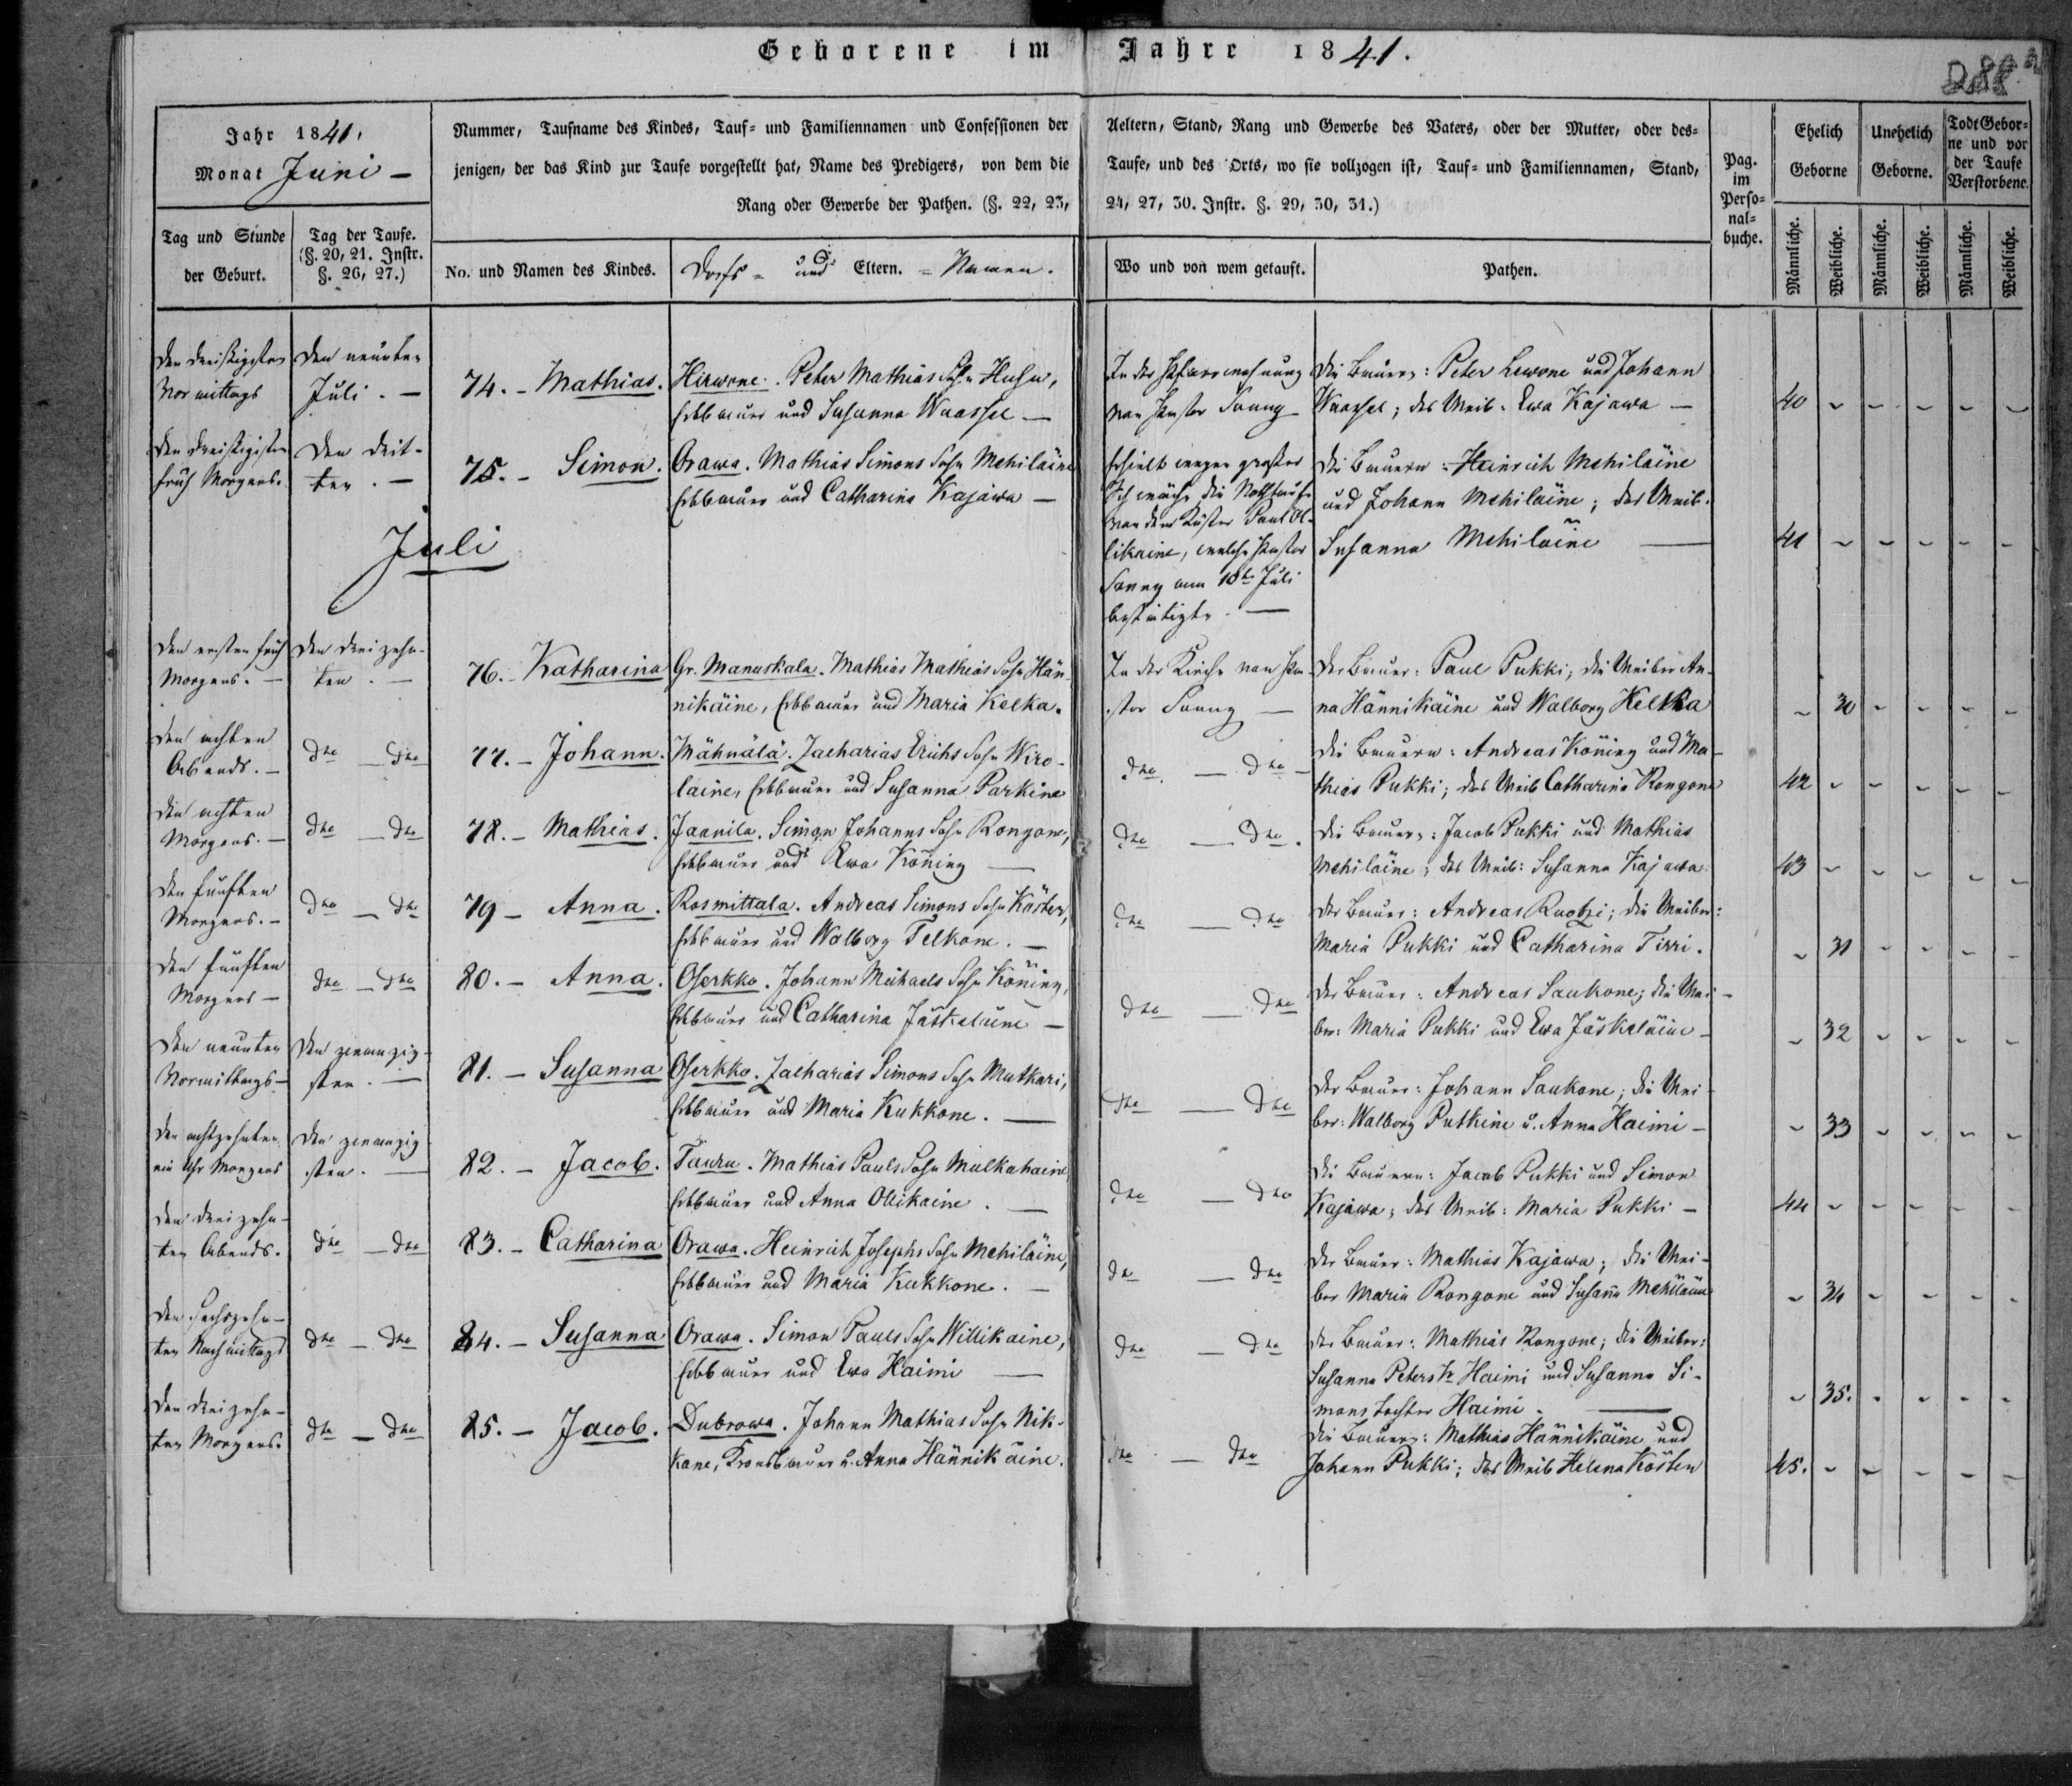 Geborene im Jahre 1841.
288
Jahr 1841,
Monat Juni –
Nummer, Taufname des Kindes, Tauf- und Familiennamen und Confessionen der
jenigen, der das Kind zur Taufe vorgestellt hat, Name des Predigers, von dem die
Rang oder Gewerbe der Pathen. (§. 22, 23,
Aeltern, Stand, Rang und Gewerbe des Vaters, oder der Mutter, oder des-
Taufe, und des Orts, wo sie vollzogen ist, Tauf- und Familiennamen, Stand,
24, 27, 30. Instr. §. 29, 30, 31.)
Pag.
im
Perso-
nal-
buche.
Ehelich
Geborne
Unehelich
Geborne.
Todt Gebor-
ne und vor
der Taufe
Verstorbene.
Tag und Stunde
der Geburt.
Tag der Taufe.
(§. 20, 21. Instr.
§. 26, 27.)
No. und Namen des Kindes.
Dorfs- und Eltern. - Namen.
Wo und von wem getauft.
Pathen.
Männliche.
Weibliche.
Männliche.
Weibliche.
Männliche.
Weibliche.
Den dreißigsten
Vormittags
Den neunten
Juli. –
74. – Mathias.
Hirwone. Peter Mathias Sohn Huhn,
Erbbauer und Susanna Waassel –
In der Pfarrwohnung
von Pastor
Die Bauern: Peter Lewone und Johann
Waassel; das Weib: Ewa Kajawa –
40 – – – – –
Den dreißigsten
früh Morgens.
Den drit-
ten. –
75. – Simon.
Orawa. Mathias Simons Sohn Mehiläine
Erbbauer und Catharina Kajawa –
Erhielt wegen großer
Schwäche die Nothtaufe
von dem Küster Paul Ol-
likaine, welche Pastor
am 10ten Juli
bestätigte. –
Die Bauern: Heinrich Mehiläine
und Johann Mehiläine; das Weib.
Susanna Mehiläine –
41 – – – – –
Juli
Den ersten früh
Morgens. –
Den dreizehn-
ten. –
76. – Katharina
Gr. Manuskala. Mathias Mathias Sohn Hän-
nikäine, Erbbauer und Maria Kelka.
In der Kirche von Pa-
stor
Der Bauer: Paul Pukki; die Weiber An-
na Hännikäine und Walborg Kelka
– 30 – – – –
Den achten
Abends. –
dto – dto
77. – Johann.
Mähnälä. Zacharias Erichs Sohn Wiro-
laine, Erbbauer und Susanna Parkine
dto – dto
Die Bauern: Andreas Köning und Ma-
thias Pukki; das Weib Catharina Rongone
42 – – – – –
Den achten
Morgens. –
dto – dto
78. – Mathias.
Jaanila. Simon Johanns Sohn Rongone,
Erbbauer und Ewa Köning –
dto – dto.
Die Bauern: Jacob Pukki und Mathias
Mehiläine; das Weib: Susanna Kajawa
43 – – – – –
Den fünften
Morgens. –
dto – dto
79 – Anna.
Rosmittala. Andreas Simons Sohn Köster,
Erbbauer und Walborg Telkone. –
dto – dto
Der Bauer: Andreas Ruotzi; die Weiber:
Maria Pukki und Catharina Tirri.
– 31 – – – –
Den fünften
Morgens –
dto – dto
80. – Anna.
Oserkko. Johann Michaels Sohn Köning,
Erbbauer und Catharina Jäskeläine –
dto – dto
Der Bauer: Andreas Saukone; die Wei-
ber: Maria Pukki und Ewa Jäskeläine –
– 32 – – – –
Den neunten
Vormittags –
Den zwanzig-
sten. –
81. – Susanna
Oserkko. Zacharias Simons Sohn Mutkari,
Erbbauer und Maria Kukkone. –
dto – dto
Der Bauer: Johann Saukone; die Wei-
ber: Walborg Putkine u. Anna Haimi –
– 33 – – – –
Den achtzehnten
ein Uhr Morgens
Den zwanzig-
sten. –
82. – Jacob.
Tauru. Mathias Pauls Sohn Mulkahaine,
Erbbauer und Anna Ollikaine. –
dto – dto
Die Bauern: Jacob Pukki und Simon
Kajawa; das Weib: Maria Pukki –
44 – – – – –
Den dreizehn-
ten Abends.
dto – dto
83. – Catharina
Orawa. Heinrich Josephs Sohn Mehiläine,
Erbbauer und Maria Kukkone. –
dto – dto
Der Bauer: Mathias Kajawa; die Wei-
ber Maria Rongone und Susana Mehiläine
– 34 – – – –
Den sechszehn-
ten Nachmittags
dto – dto
84. – Susanna
Orawa. Simon Pauls Sohn Willikaine,
Erbbauer und Ewa Haimi –
dto – dto
Der Bauer: Mathias Rongone; die Weiber:
Susanna Peters Tr Haimi und Susanna Si-
mons Tochter Haimi. –
– 35. – – – –
Den dreizehn-
ten Morgens.
dto – dto
85. – Jacob.
Dubrowa. Johann Mathias Sohn Nik-
kane, Kronsbauer u. Anna Hännikäine.
dto – dto
Die Bauern: Mathias Hännikäine und
Johann Pukki; das Weib Helena Kösten
45. – – – – –